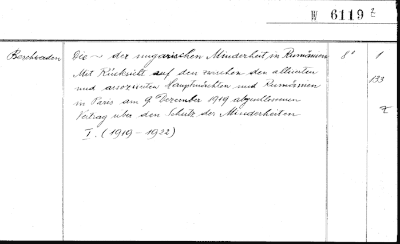 W 6119 2
Beschwerden Die - der ungarischen Minderheit in Rumänien 8° 1
Mit Rücksicht auf den zwischen den alliierten
und assoziierten Hauptmächten und Rumänien 133
in Paris am 9. Dezember 1919 abgeschlossenen
Vertrag über den Schutz der Minderheiten
I. (1919-1922)